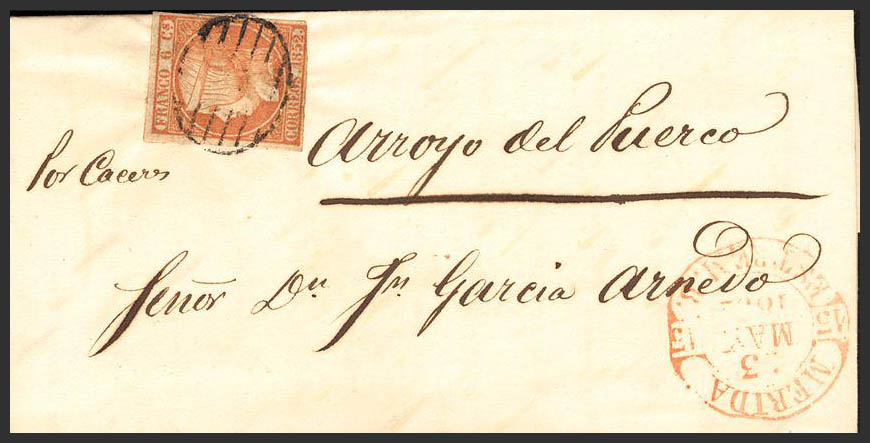 FRANCO 6 Cs
CORREOS 1852
Arroyo del Puerco
Por Caceres
Señor Dn Jn Garcia Arnedo
3
MAY
MERIDA